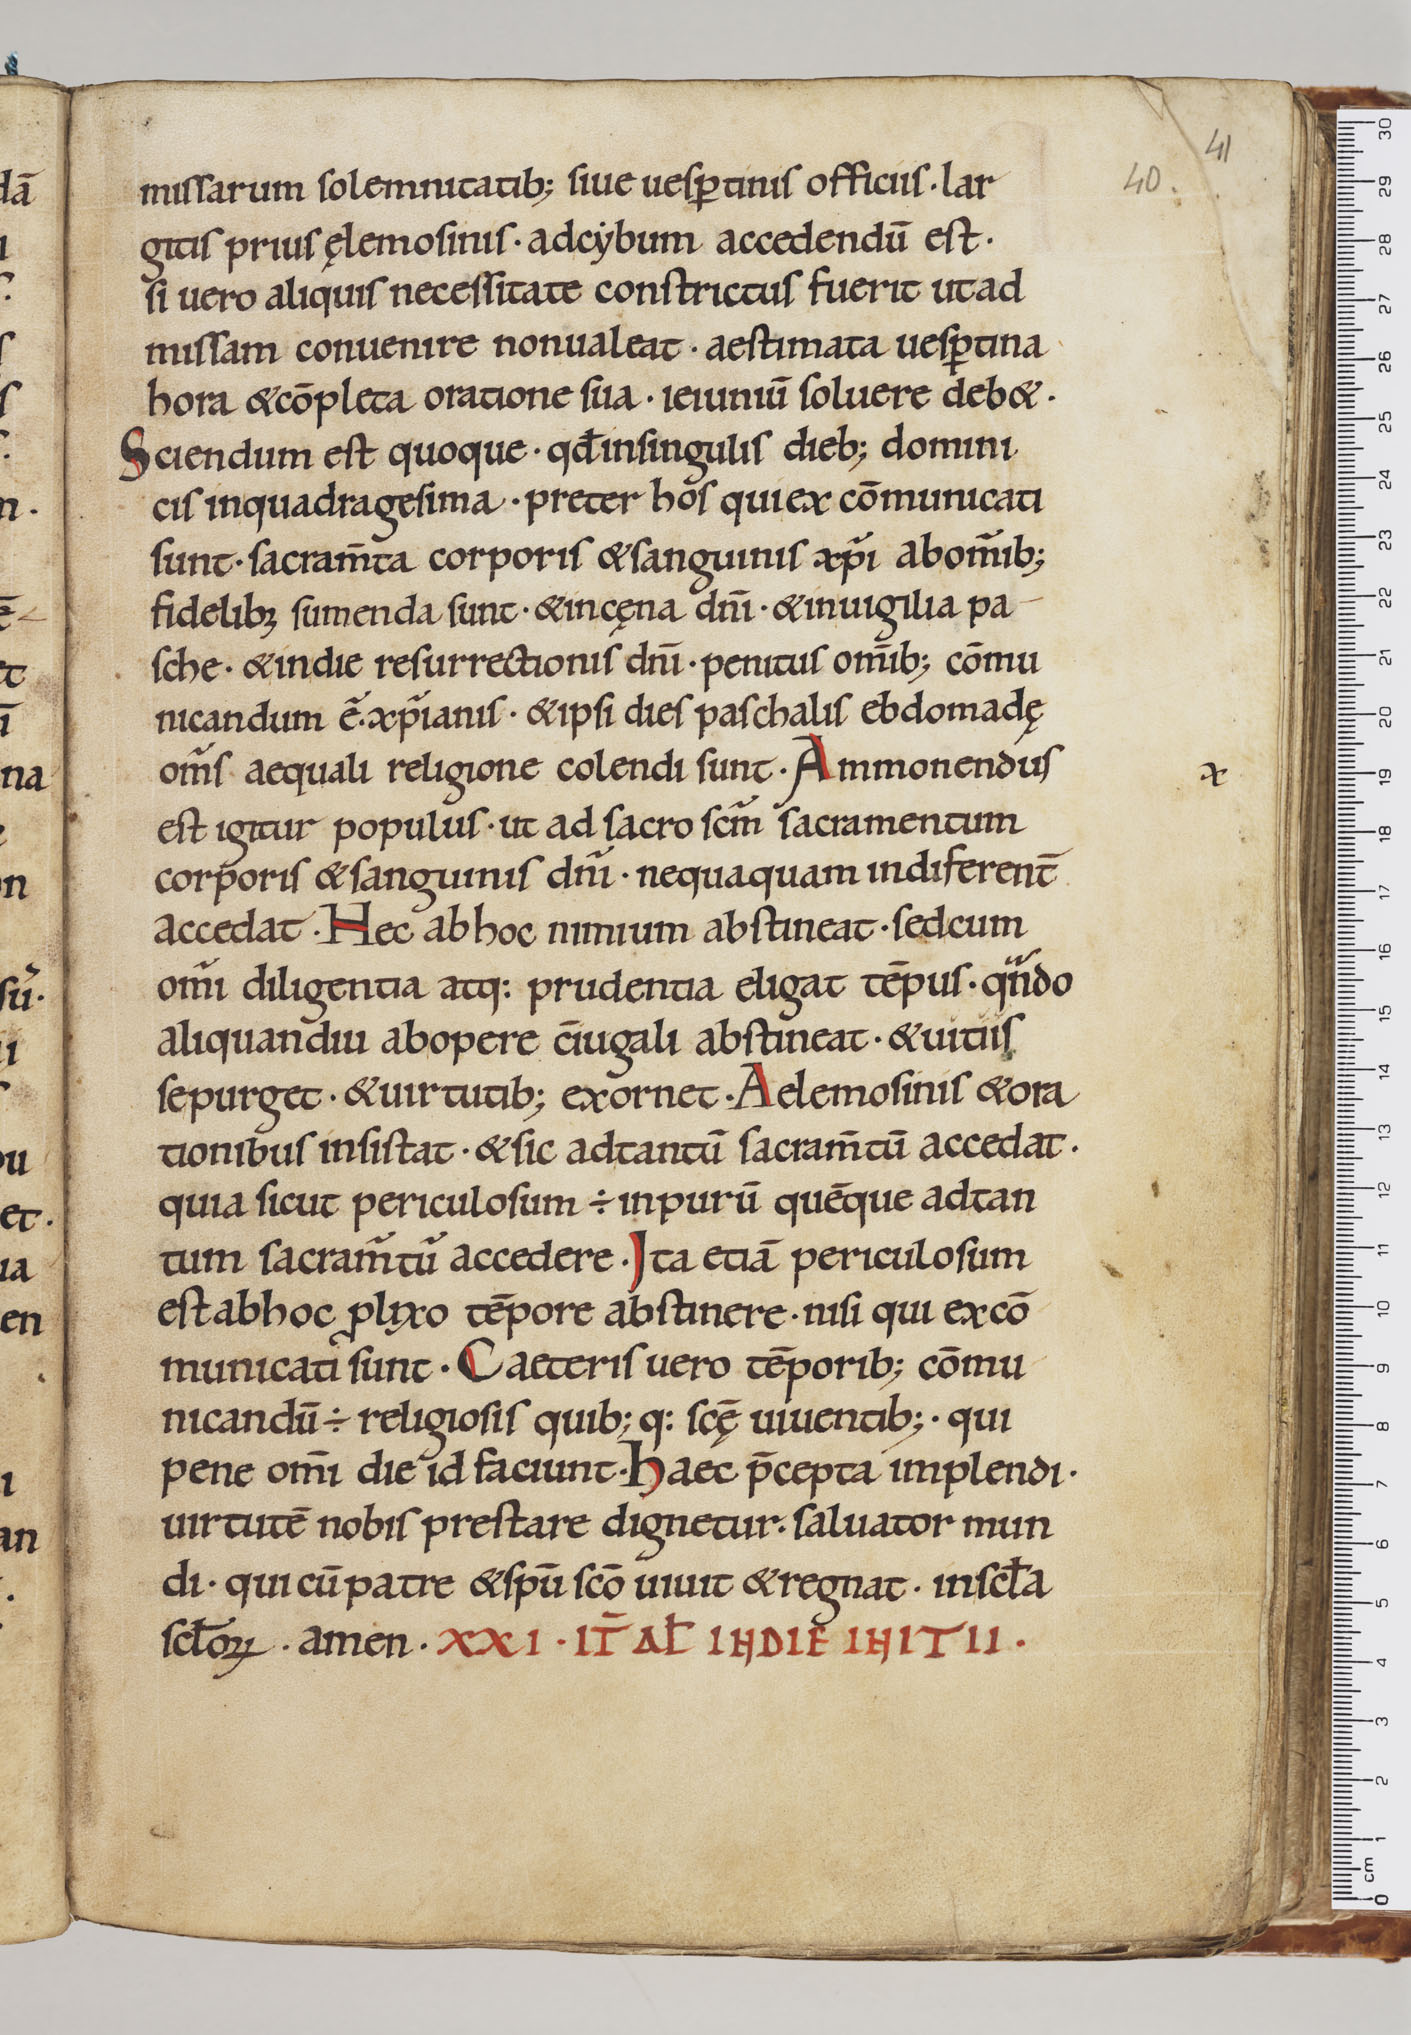 41
40.
missarum solemnitatib; siue uesꝑtinis officiis · lar
gitis prius ęlemosinis · adcẏbum accedendū est ·
si uero aliquis necessitate constrictus fuerit utad
missam conuenire nonualeat · aestimata uesꝑtina
hora &cōpleta oratione sua · ieiuniū soluere deb& ·
Sciendum est quoque · qđinsingulis dieb; domini
cis inquadragesima · preter hos quiex cōmunicati
sunt · sacram̄ta corporis &sanguinis xp̄i abom̄ib;
fidelibꝫ sumenda sunt · &incęna dn̄i · &inuigilia pa
sche · &indie resurrectionis dn̄i · penitus om̄ib; cōmu
nicandum ē · xp̄ianis · &ipsi dies paschalis ebdomadę
om̄s aequali religione colendi sunt · Ammonendus
x
est igitur populus · ut ad sacro scm̄ sacramentum
corporis &sanguinis dn̄i · nequaquam indiferent̄
accedat · Hec abhoc nimium abstineat · sedcum
om̄i diligentia atq: prudentia eligat tēpus · qn̄do
aliquandiu abopere c̄iugali abstineat · &uitiis
sepurget · &uirtutib; exornet · Aelemosinis &ora
tionibus insistat · &sic adtantū sacram̄tū accedat ·
quia sicut periculosum ÷ inpurū quēque adtan
tum sacram̄tū accedere · Ita etiā periculosum
estabhoc ꝓlixo tēpore abstinere · nisi qui excō
municati sunt · Caeteris uero tēporib; cōmu
nicandū ÷ religiosis quib; q: scę̄ uiuentib; · qui
pene om̄i die id faciunt · haec p̄cepta implendi ·
uirtutē nobis prestare dignetur · saluator mun
di · qui cū patre &spū scō uiuit &regnat · inscła
scłoꝝ · amen · XXI · IT̄ AŁ INDIE INITII ·